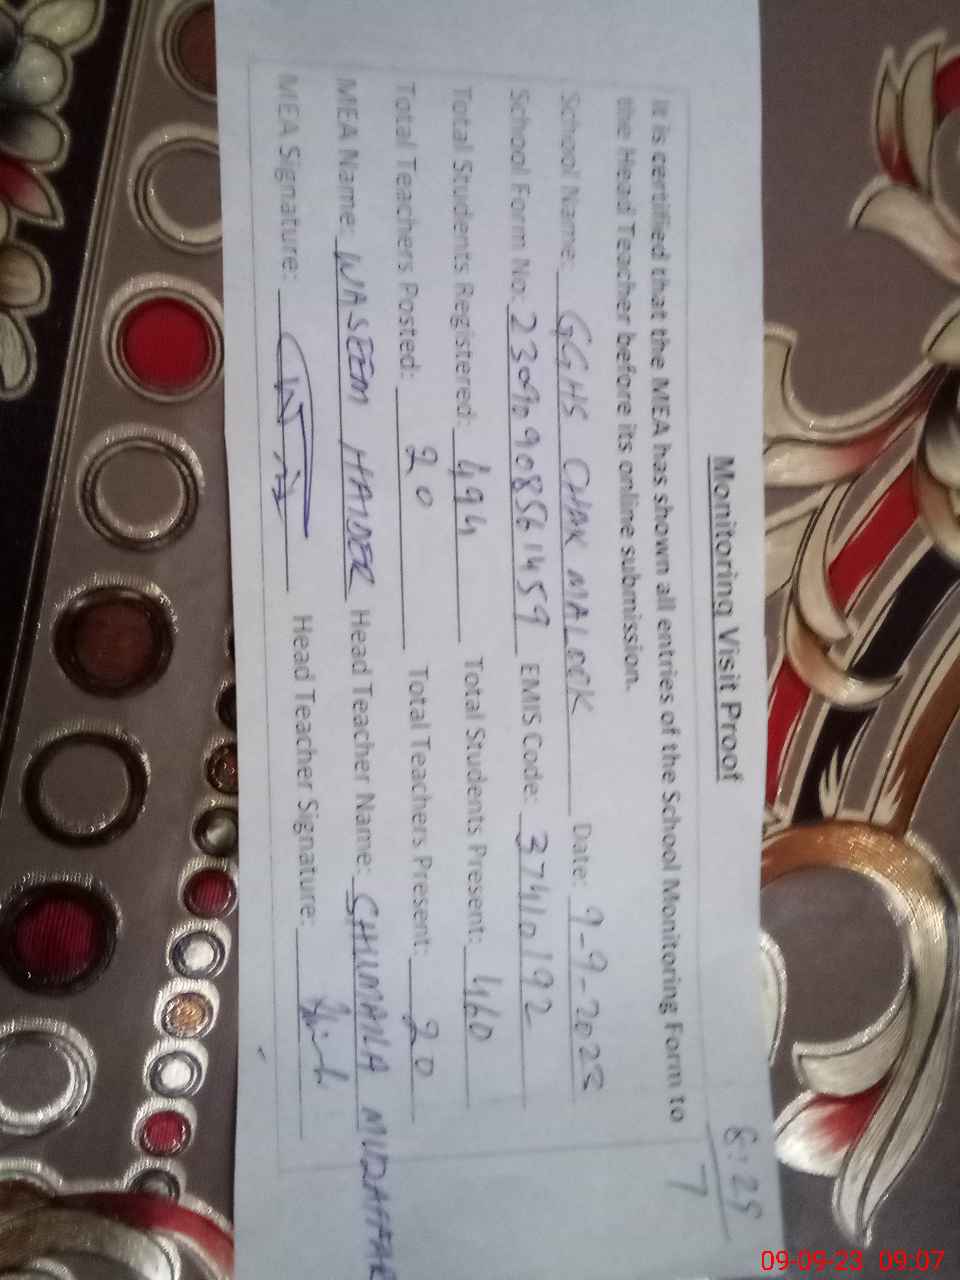 8:25
7
Monitoring Visit Proof
It is certified that the MEA has shown all entries of the School Monitoring Form to
the Head Teacher before its online submission.
School Name: GGHS CHAK MALOOK Date: 9-9-2023
School Form No: 23090908561459 EMIS Code: 37410192
Total Students Registered: 494 Total Students Present: 460
Total Teachers Posted: 20 Total Teachers Present: 20
MEA Name: WASEEM HAIDER Head Teacher Name: SHUMAILA MUZAFFAR
MEA Signature: Head Teacher Signature:
09-09-23 09:07